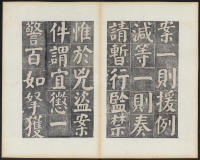 案一則援例
減等一則奏
請暫行監禁
惟於兇盜案
件謂宜懲一
警百如拏獲